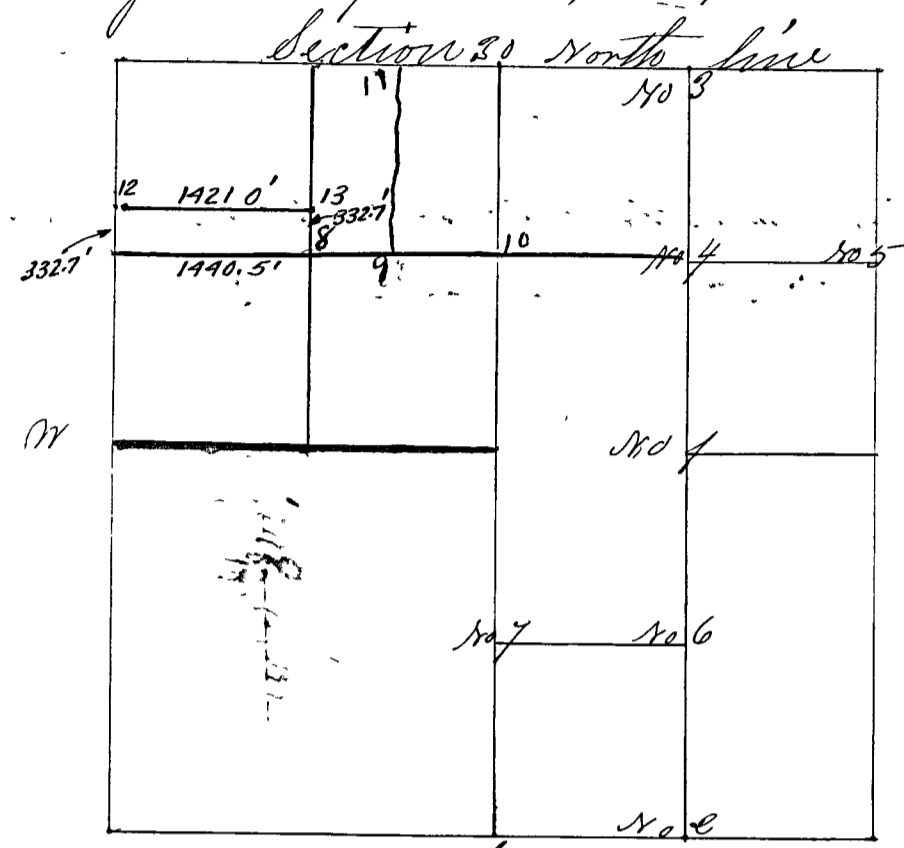 Section 30 North line
11
No 3
12 1421.0' 13
332.7'
8 10
332.7' 1440.5' 9 No 4 No 5
W No 1
No 7 No 6
No 2